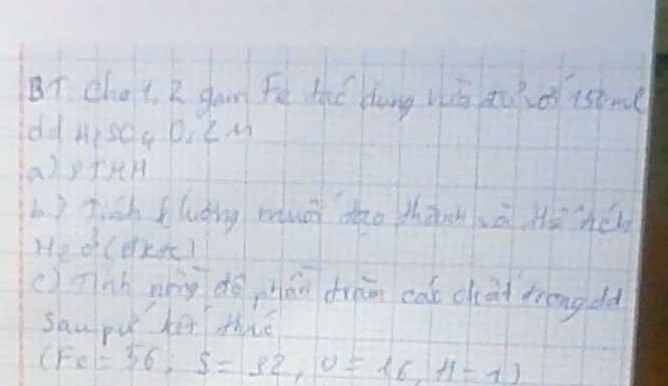 BT. Cho 1,2 gam Fe tác dụng vừa đủ với 150ml
dd H2SO4 0,2M
a) PTHH
b) Tính lượng muối tạo thành và thể tích
H2 ở (đktc)
c) Tính nồng độ phần trăm các chất trong dd
sau pư kết thúc
(Fe = 56; S = 32, O = 16, H = 1)